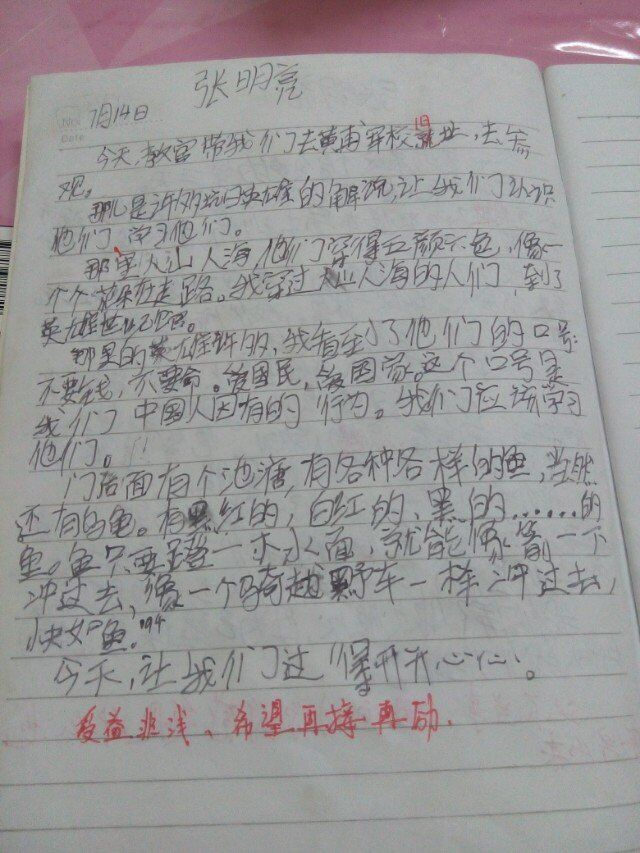 张明亮
No.
Date
7月14日
今天,教官带我们去黄甫军校旧址,去参
观。
那儿是许多抗日英雄的解说,让我们认识
他们,学习他们。
那里人山人海,他们穿得五颜六色,像一
个个花朵在走路。我穿过人山人海的人们,到了
英雄
那里的英雄许多,我看到了他们的口号:
不要钱,不要命。爱国民,爱国家。这个口号是
我们中国人因有的行为。我们应该学习
他们。
门后面有个池溏,有各种各样的鱼,当然
还有乌龟。有红的,白红的,黑的……的
鱼。鱼只要一水面,就能像箭一下
冲过去,像一个骑越野车一样冲过去,
今天,让我们过得开开心心。
受益非浅、希望再接再励.